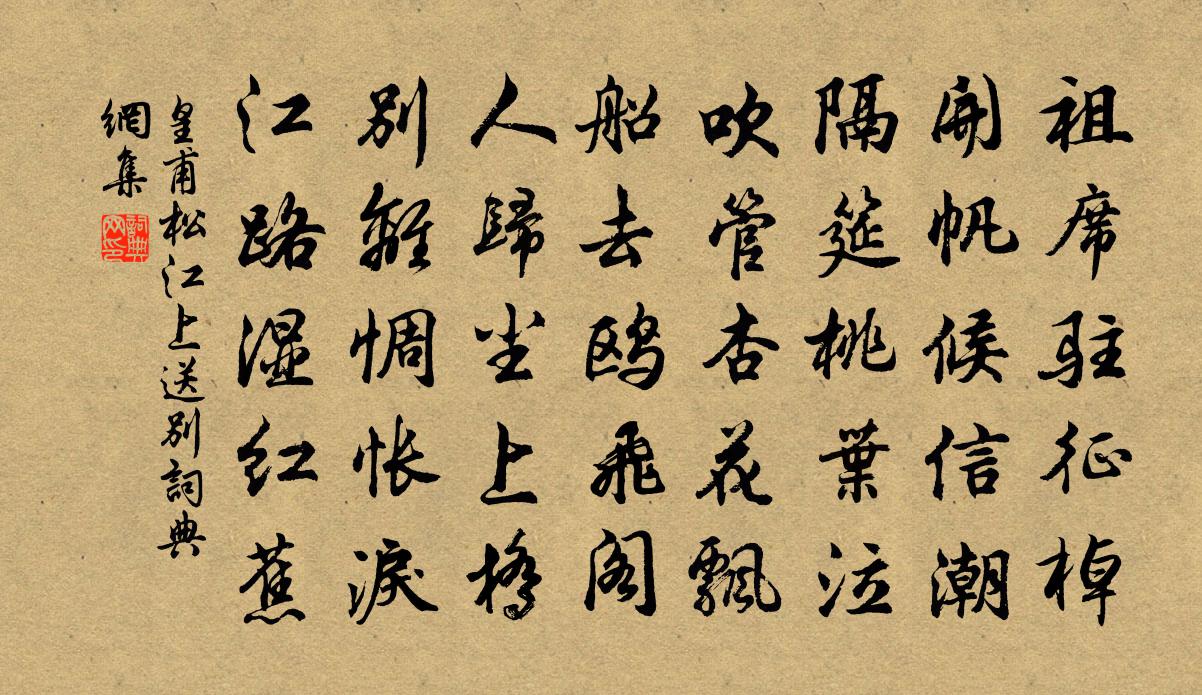 祖席駐征棹
開帆候信潮
隔筵桃葉泣
吹管杏花飄
船去鷗飛閣
人歸塵上橋
別離惆悵淚
江路濕紅蕉
皇甫松江上送別詞典
網集
詞典网印